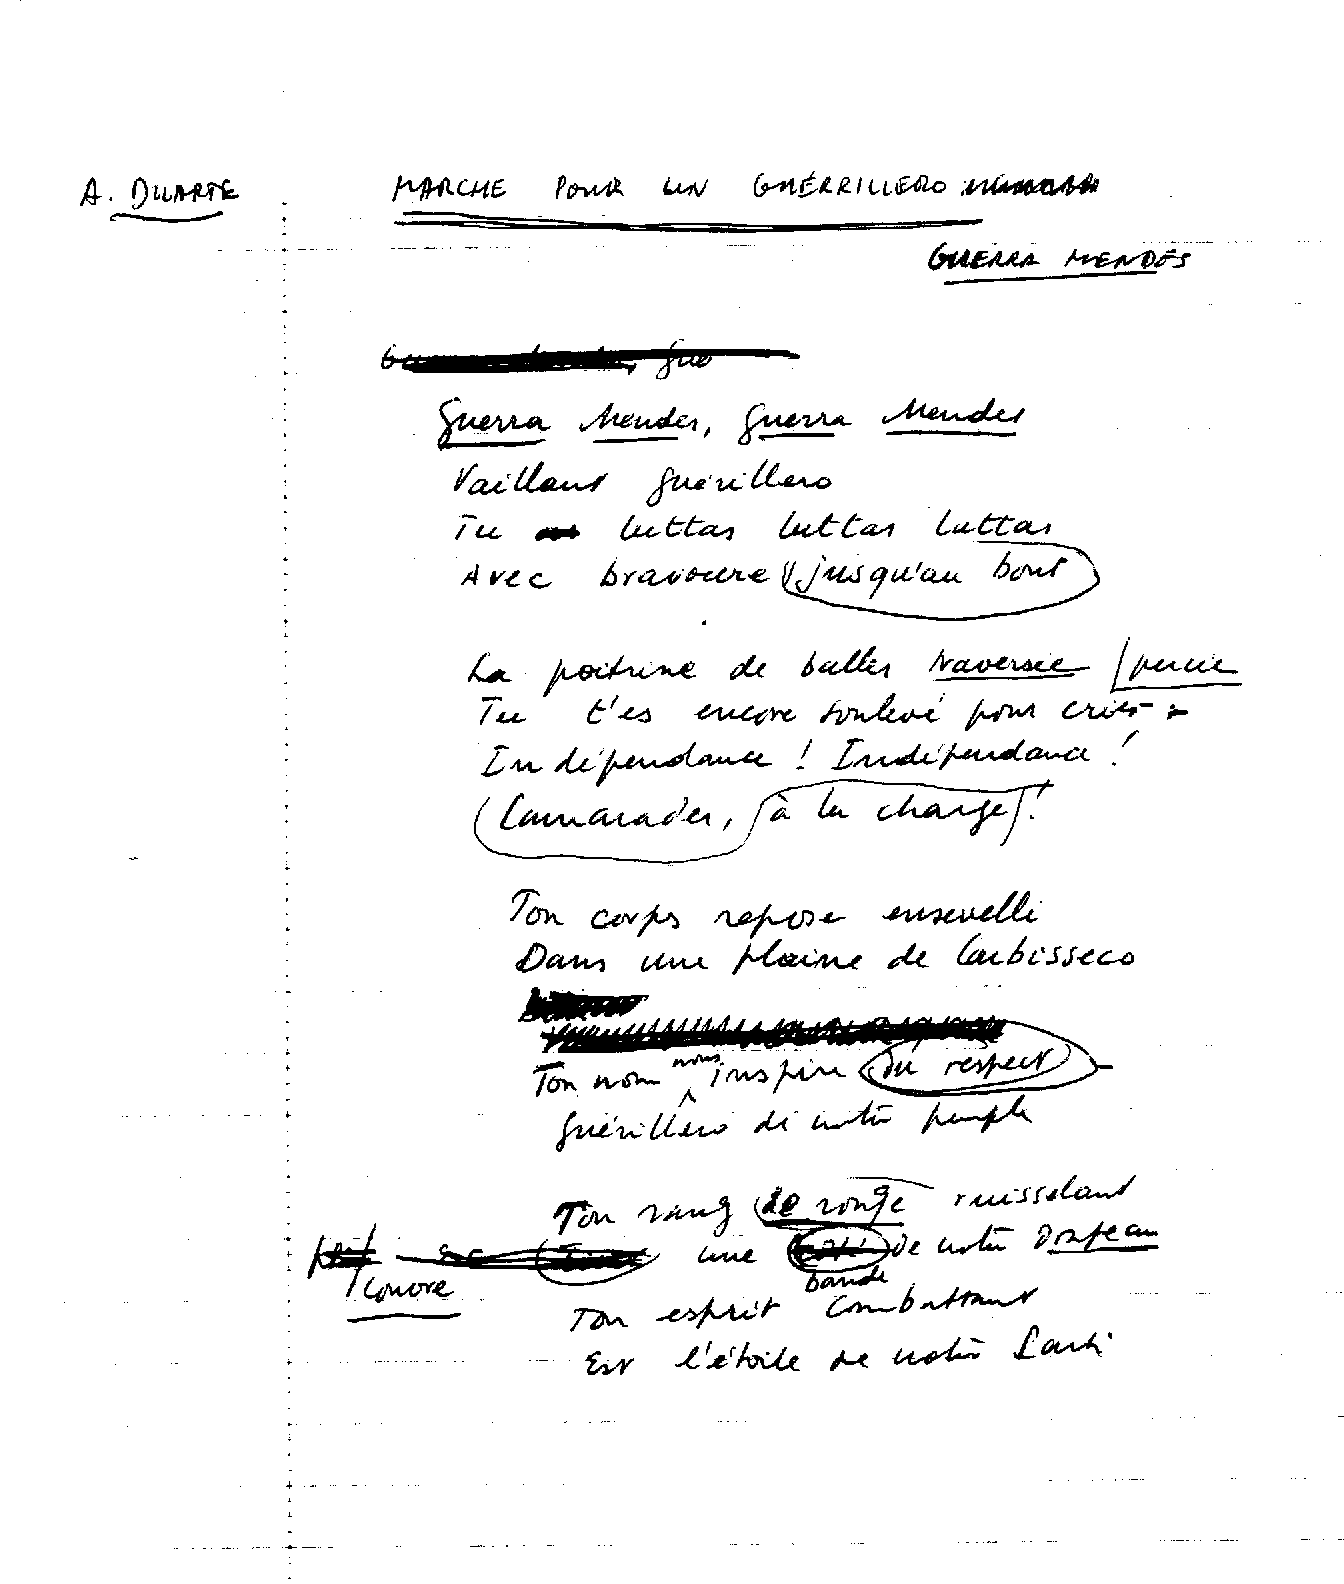 A. DUARTE
MARCHE POUR UN GUÉRRILLERO
GUERRA MENDÈS
Gue
Guerra Mendes, Guerra Mendes
Vaillant guérillero
Tu luttas luttas luttas
Avec bravoure jusqu'au bout
La poitrine de balles traversée / percée
Tu t'es encore soulevé pour crier :
Indépendance ! Indépendance !
Camarades, à la charge !
Ton corps repose ensevelli
Dans une plaine de Cubisseco
Ton nom nous inspire du respect
Guérillero de notre peuple
Ton sang de rouge ruisselant
une de notre Drapeau
bande
Colore
Ton esprit combattant
Est l'étoile de notre Parti